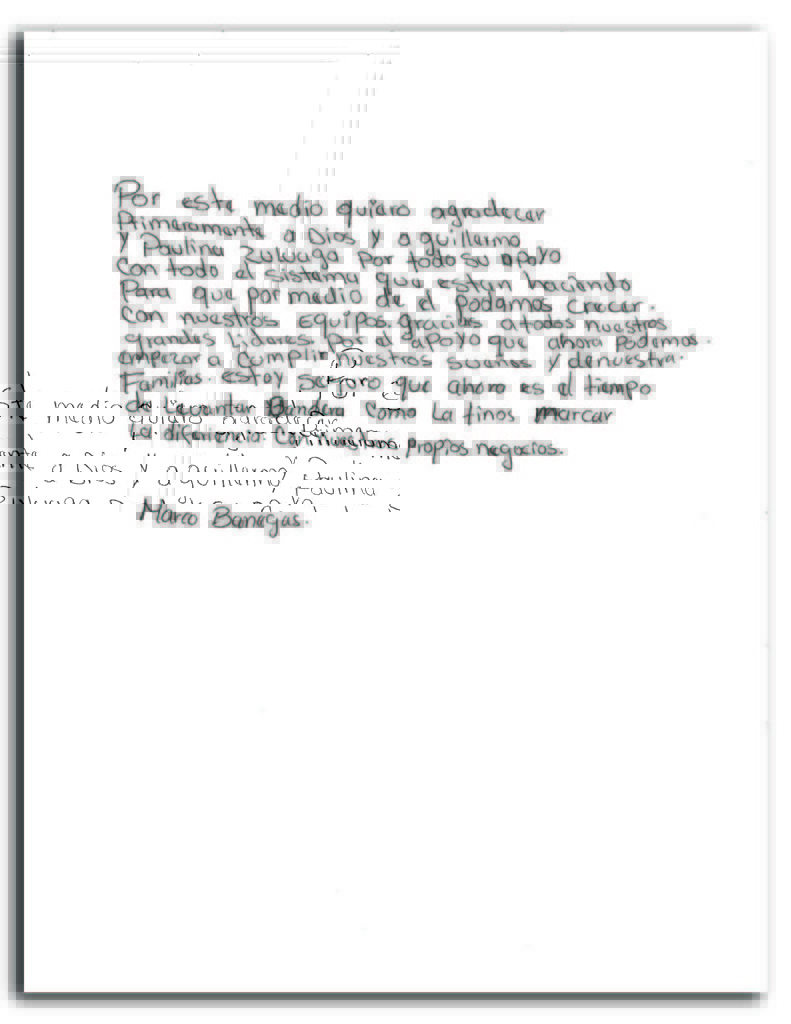 Por este medio quiero agradecer
Primeramente a Dios y a guillermo
y Paulina Zuluaga Por todo su apoyo
con todo el sistema que estan haciendo
Para que por medio de el podamos crecer.
con nuestros equipos. gracias a todos nuestros
grandes Lideres. Por el apoyo que ahora Podemos.
empezar a cumplir nuestros sueños y de nuestra.
Familias. estoy seguro que ahora es el tiempo
de Levantar Bandera como Latinos marcar
La diferencia con nuestros propios negocios.
Marco Banegas.
ste medio quiero agradecer
a Dios y a guillermo y Paulina